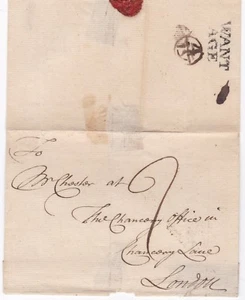 WANT
AGE
To
Mr Chester at
The Chancery Office in
Chancery Lane
London